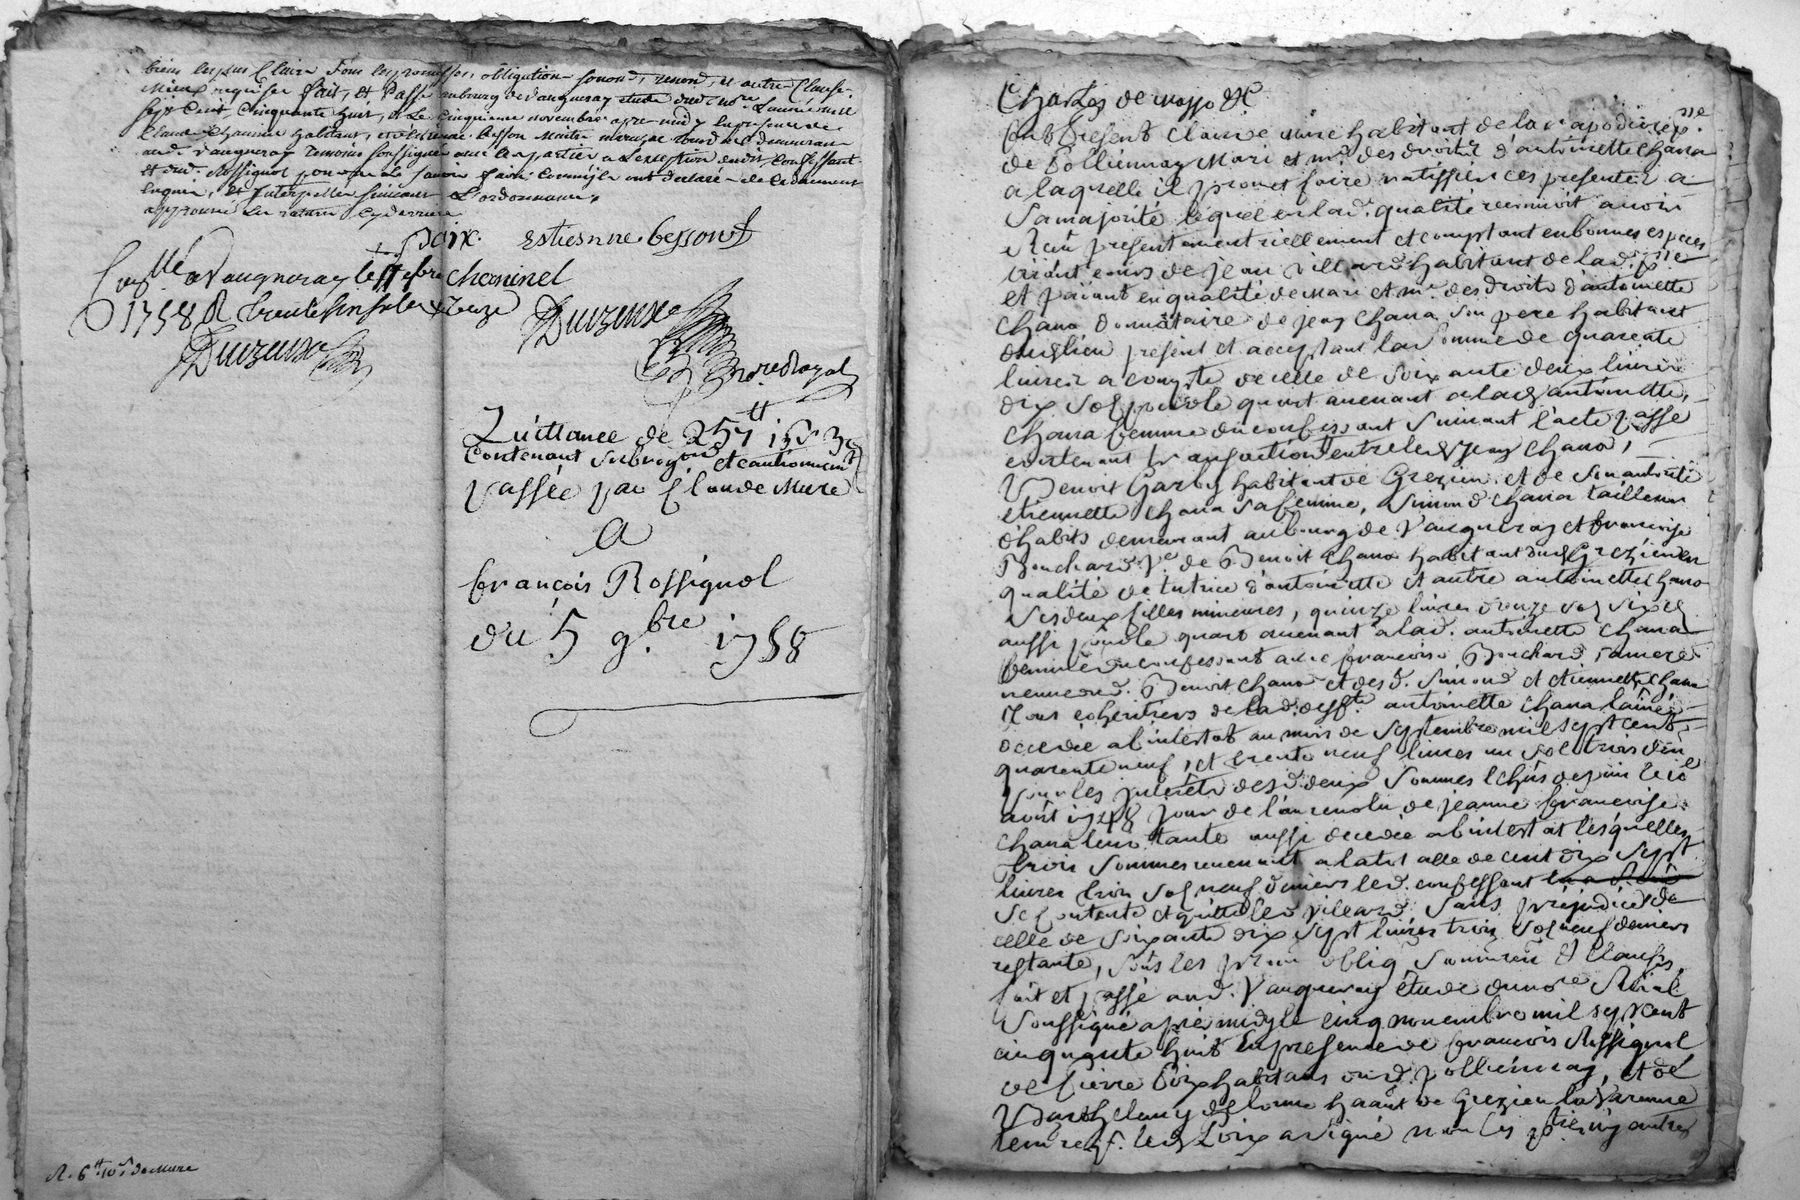 biens les plus Claire Sous les promesses, obligation soumon, renon, et autre Clause
Mieux requises fait, et Passé aubourg de vaugneray etude dud. nore. L'année mil
sept Cent Cinquante huit, et Le Cinquieme novembre apres midy En presence de
Claude Cheminel habitant, et d'Estienne besson Maitre
aud. vaugneray temoins soussignés avec les parties a L'exception dudit Confessant
et dud. Rossignol pour ne le savoir faire Comme ils ont declaré de Ce duement
enquis, et Interpellés suivant L'ordonnance,
approuvé
Loix. estienne besson
Collé a Vaugneray le 17 9bre Cheminel
1758 R. trente six sols onze
Duvzeux Duvzeux
nore Royal
Quittance de 257lt 13s 3d
Contenant subrogon et cautionnement
passée par Claude Mure
A
françois Rossignol
du 5 9.bre 1758
R. 6lt 10s de Mure
Charles de &c
fut present Claude mure habitant de la parodice psse
de Pollionnay Mari et me des droits d'antoinette Chana
a laquelle il promet faire ratiffier ces presentes a
sa majorité lequel en lad. qualité reconnoit avoir
Reçu presentement réellement et comptant en bonnes especes
aiant cours de jean villard habitant de lad. psse
et païant en qualité de Mari et me des droits d'antoinette
Chana donnataire de jean Chana son pere habitant
dud lieu present et acceptant la somme de quarente
livres a compte de celle de soixante deux livres
dix sols pour le quart avenant a lad antoinette
Chana femme du confessant suivant l'acte passé
contenant transaction entre led jean Chana,
Benoit Garby habitant de Grezieu et de son autorité
etiennette Chana sa femme, simond Chana tailleur
d'habits demeurant au bourg de Vaugneray et francoise
Bouchard ve. de Benoit Chana habitant dud Grezieu en
qualité de tutrice d'antoinette et autre antoinette Chana
ses deux filles mineures, quinze livres douze sols six d
aussi pour le quart avenant a lad. antoinette Chana
femme du confessant avec francoise Bouchard sa mere
veuve dud. Benoit Chana et des d. simond et etiennette Chana
tous coheritiers de lad. deffte antoinette Chana l'ainée
decedée abintestat au mois de septembre mil sept cent
quarente neuf, et trente neuf livres un sol trois den
pour les interets desd. deux sommes echûs depuis le 10e
août 1748 jour de l'an revolu de jeanne francoise
Chana leur tante aussi decedée abintestat lesquelles
trois sommes revenant a la tot alle de cent dix sept
livres trois sols neuf deniers led. confessant
se contente et quitte led villard, sans prejudice de
celle de soixante dix sept livres trois sols neuf deniers
restante, sous les prom oblig soumiss & Clauses
fait et passé aud. Vaugneray etude du nore Roïal
soussigné apres midy le cinq novembre mil sept cent
cinquante huit en presence de francois Rossignol
de pierre Loix habitans aud. pollionnay, et de
Barthelemy delorme haant de Grezieu la Varenne
temoins. led Loix a signé non les pties ny autres